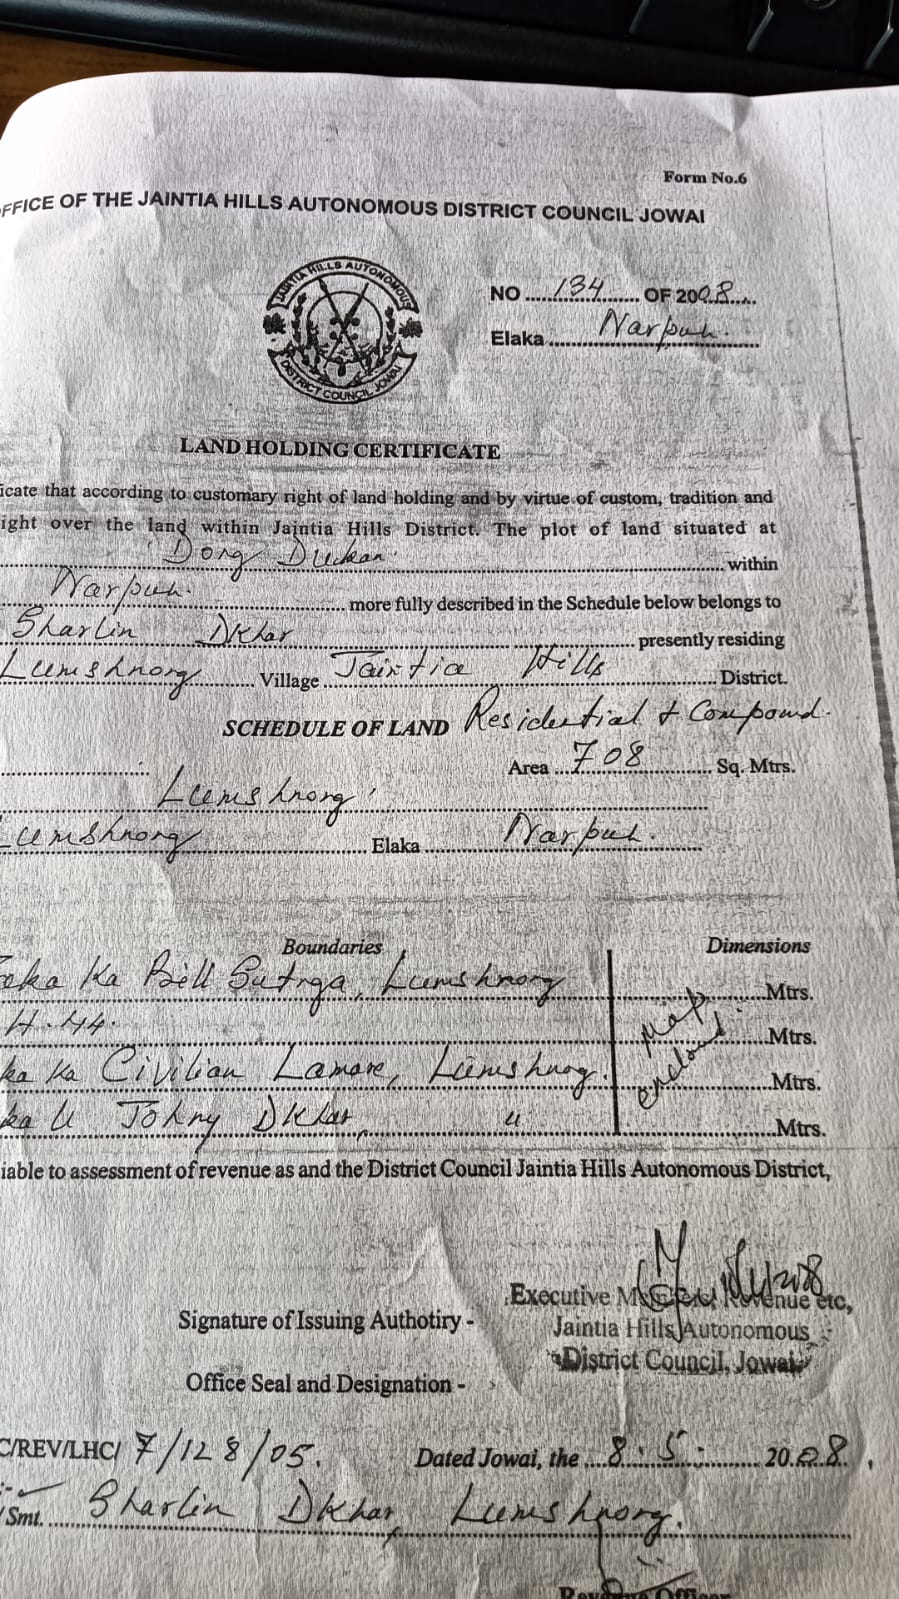 Form No.6
FFICE OF THE JAINTIA HILLS AUTONOMOUS DISTRICT COUNCIL JOWAI
JAINTIA HILLS AUTONOMOUS
DISTRICT COUNCIL JOWAI
NO ....134.... OF 2008.....
Elaka ....Narpuh.
LAND HOLDING CERTIFICATE
icate that according to customary right of land holding and by virtue of custom, tradition and
ight over the land within Jaintia Hills District. The plot of land situated at
'Dong Dukan' .... within
Narpuh. .... more fully described in the Schedule below belongs to
Sharlin Dkhar .... presently residing
Lumshnong .... Village ....Jaintia Hills .... District.
SCHEDULE OF LAND Residential & Compound.
Area ...708.... Sq. Mtrs.
Lumshnong
Lumshnong .... Elaka ....Narpuh.
Boundaries Dimensions
eka Ka Bell Sutnga, Lumshnong ....Mtrs.
H.44. ....Mtrs.
ka Ka Civilian Lamare, Lumshnong. ....Mtrs.
ka U Johny Dkhar, " ....Mtrs.
Map enclosed.
iable to assessment of revenue as and the District Council Jaintia Hills Autonomous District,
Signature of Issuing Authotiry -
Executive Revenue etc,
Jaintia Hills Autonomous
District Council, Jowai
Office Seal and Designation -
C/REV/LHC/ 7/128/05.
Dated Jowai, the ...8.5..... 2008.
/Smt. ...Sharlin Dkhar, Lumshnong.
Revenue Officer